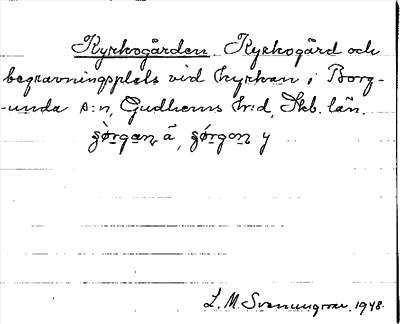 Kyrkogården. Kyrkogård och
begravningsplats vid kyrkan i Borg-
-unda s:n, Gudhems h:d, Skb. län.
görgan å, görgon y
L. M. Svenungsson, 1948.